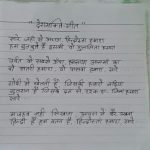 "देशभक्ति गीत"
सारे जहाँ से अच्छा हिन्दोस्ता हमारा
हम बुलबुले है इसकी ये गुलसिता हमारा
पर्वत वो सबसे ऊँचा हमसाया आसमाँ का
वो संतरी हमारा, वो पासबा हमारा, सारे
गोदी में खेलती है जिसकी हजारों नदियाँ
गुलशन है जिनके दम से हमारा
सारे
मजहब नहीं सिखाता, आपस में बैर रखना
हिन्दी है हम वतन है, हिन्दोस्ता हमारा, सारे